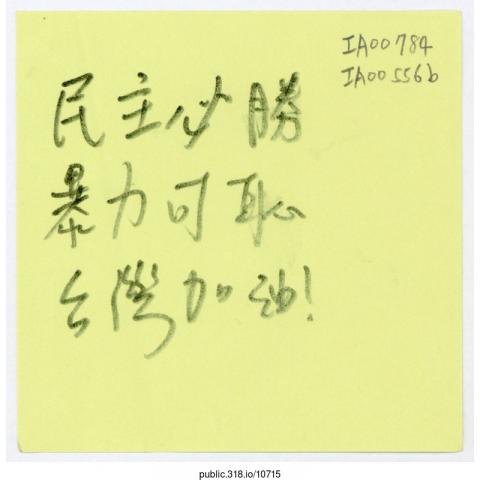 IA00784
IA00556b
民主必勝
暴力可恥
台灣加油!
public.318.io/10715